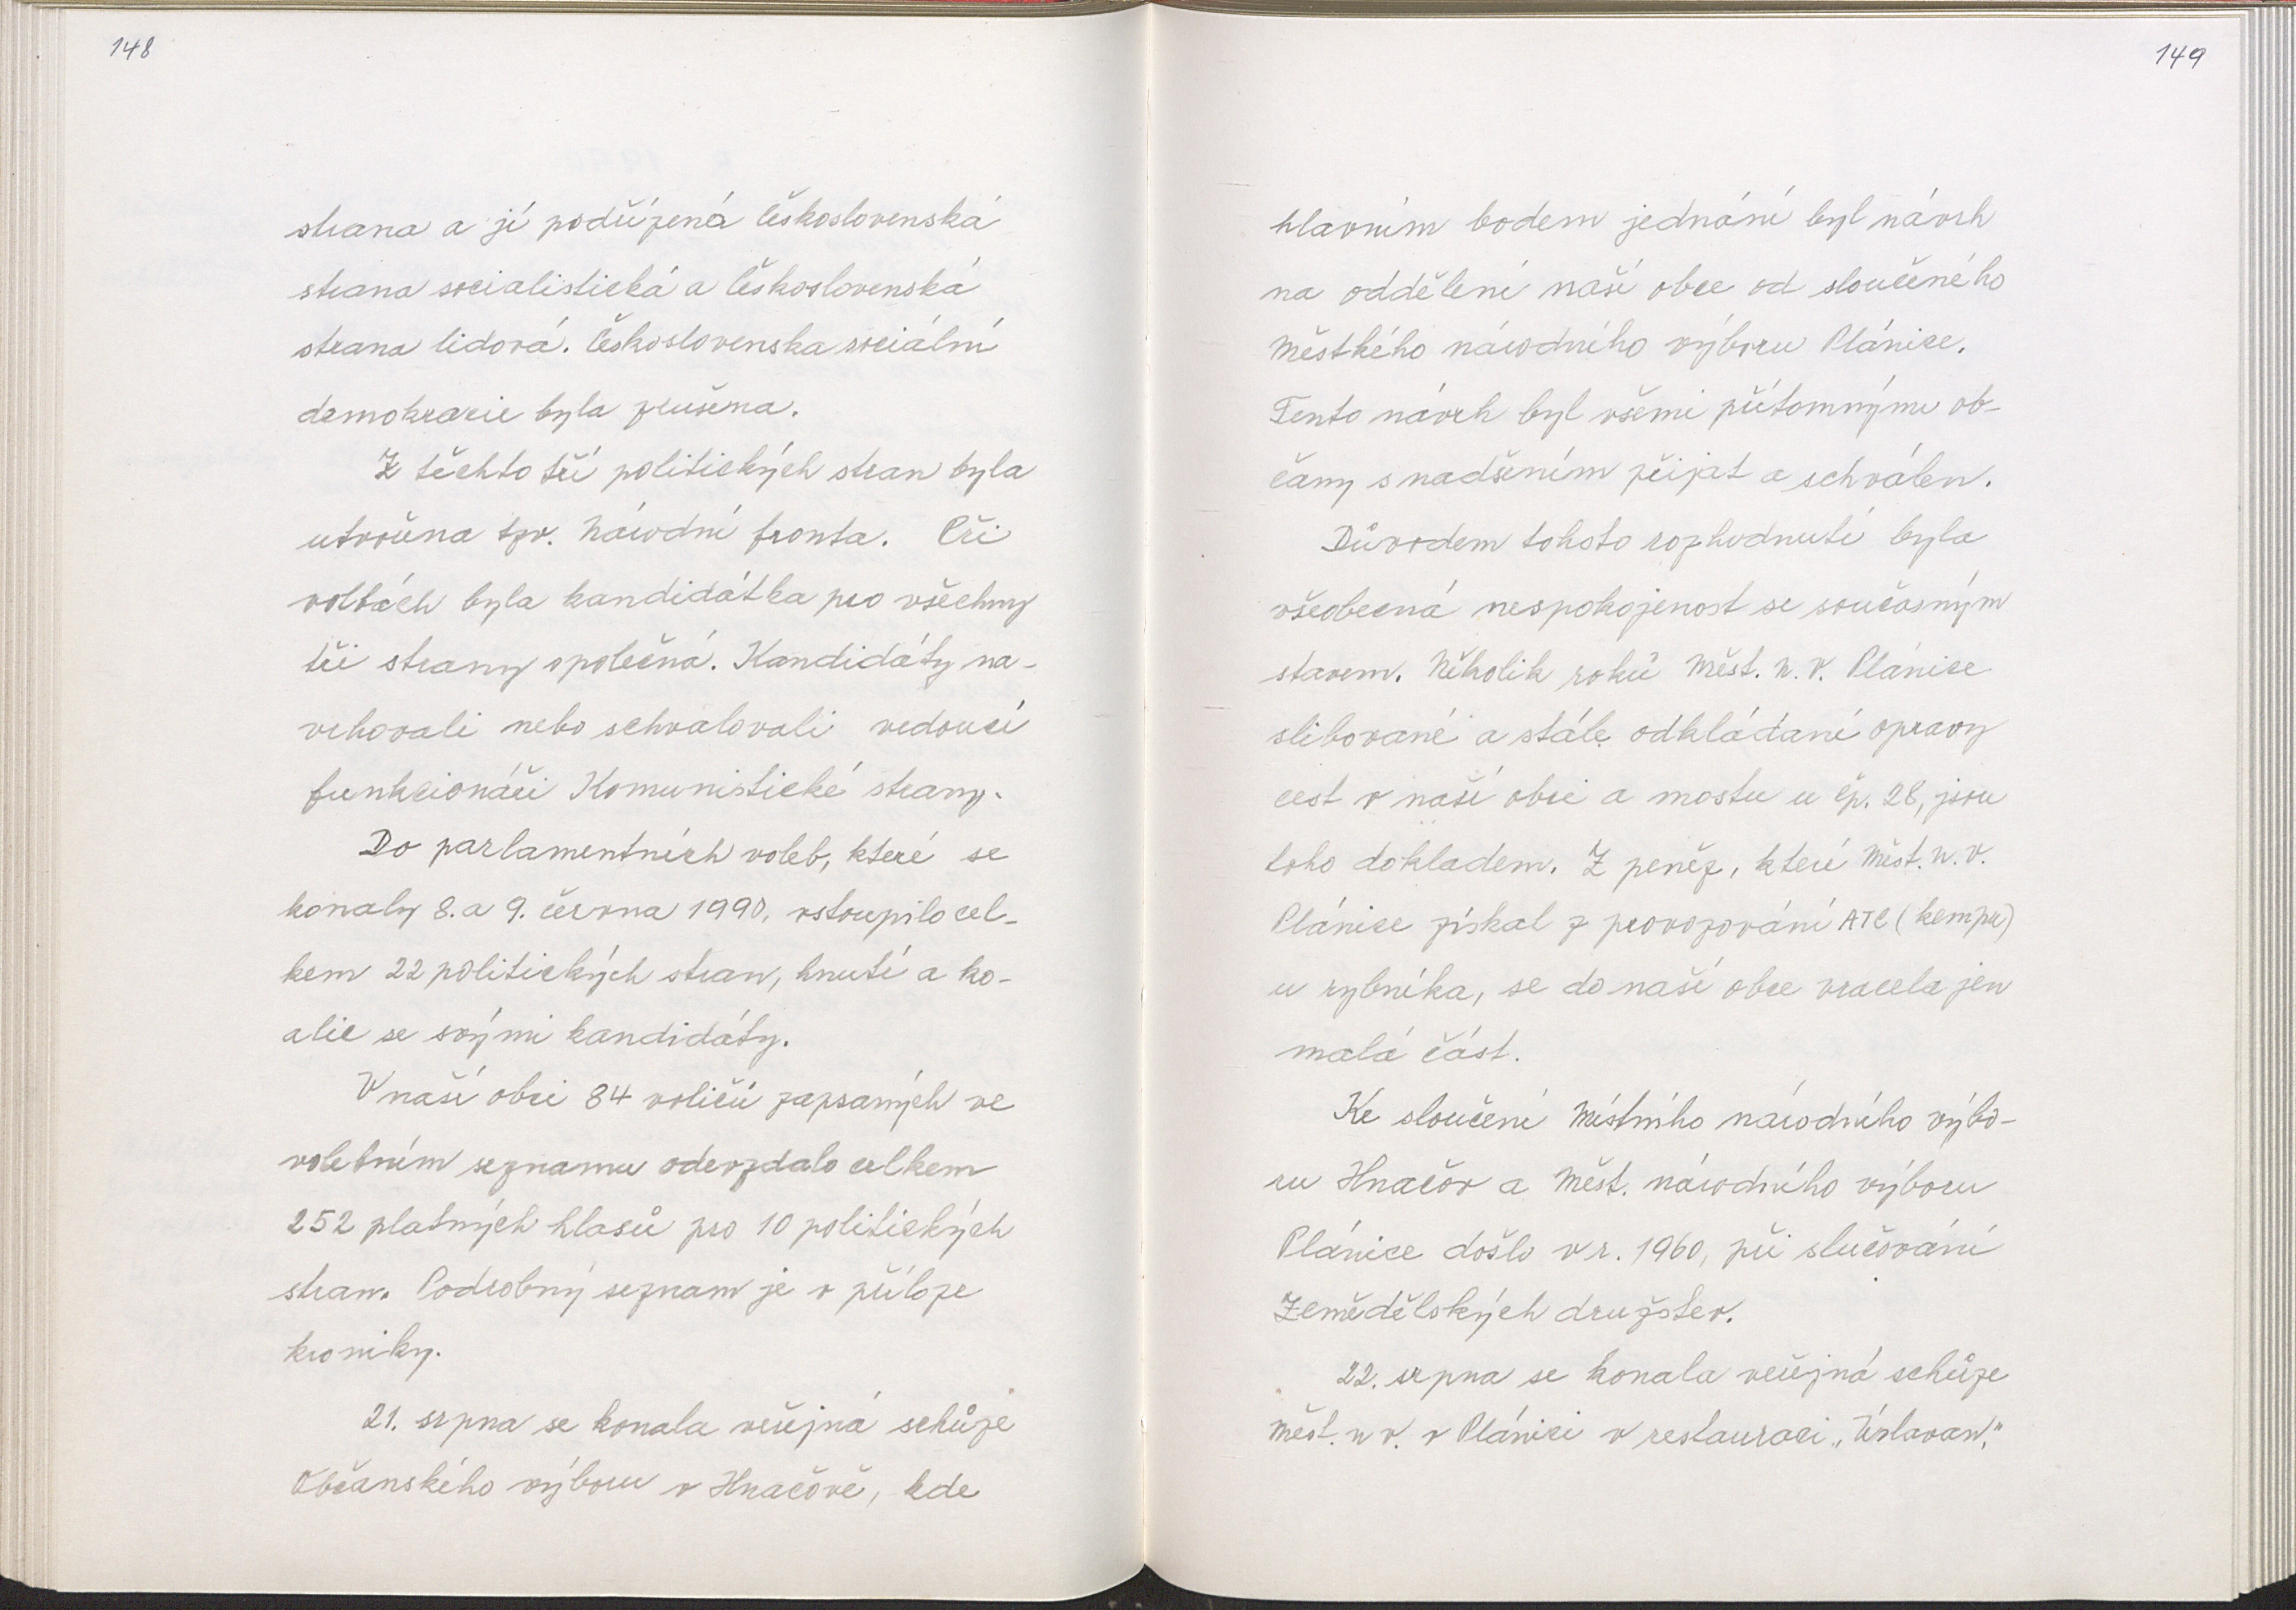 148
strana a jí podřízená Československá
strana socialistická a Československá
strana lidová. Československa sociální
demokracie byla zrušena.
Z těchto tří politických stran byla
utvořena tzv. Národní fronta. Při
volbách byla kandidátka pro všechny
tři strany společná. Kandidáty na-
vrhovali nebo schvalovali vedoucí
funkcionáři Komunistické strany.
Do parlamentních voleb, které se
konaly 8. a 9. června 1990, vstoupilo cel-
kem 22 politických stran, hnutí a ko-
alic se svými kandidáty.
V naší obci 84 voličů zapsaných ve
volebním seznamu odevzdalo celkem
252 platných hlasů pro 10 politických
stran. Podrobný seznam je v příloze
kroniky.
21. srpna se konala veřejná schůze
Občanského výboru v Hnačově, kde
149
hlavním bodem jednání byl návrh
na oddělení naší obce od sloučeného
Městkého národního výboru Plánice.
Tento návrh byl všemi přítomnými ob-
čany s nadšením přijat a schválen.
Důvodem tohoto rozhodnutí byla
všeobecná nespokojenost se současným
stavem. Několik roků Měst. N. V. Plánice
slibované a stále odkládané opravy
cest v naší obci a mostu u čp. 28, jsou
toho dokladem. Z peněz, které Měst. N. V.
Plánice získal z provozování ATC (kempu)
u rybníka, se do naší obce vracela jen
malá část.
Ke sloučení Místního národního výbo-
ru Hnačov a Měst. národního výboru
Plánice došlo v r. 1960, při slučování
Zemědělských družstev.
22. srpna se konala veřejná schůze
Měst. N V. v Plánici v restauraci „Úslavan,"